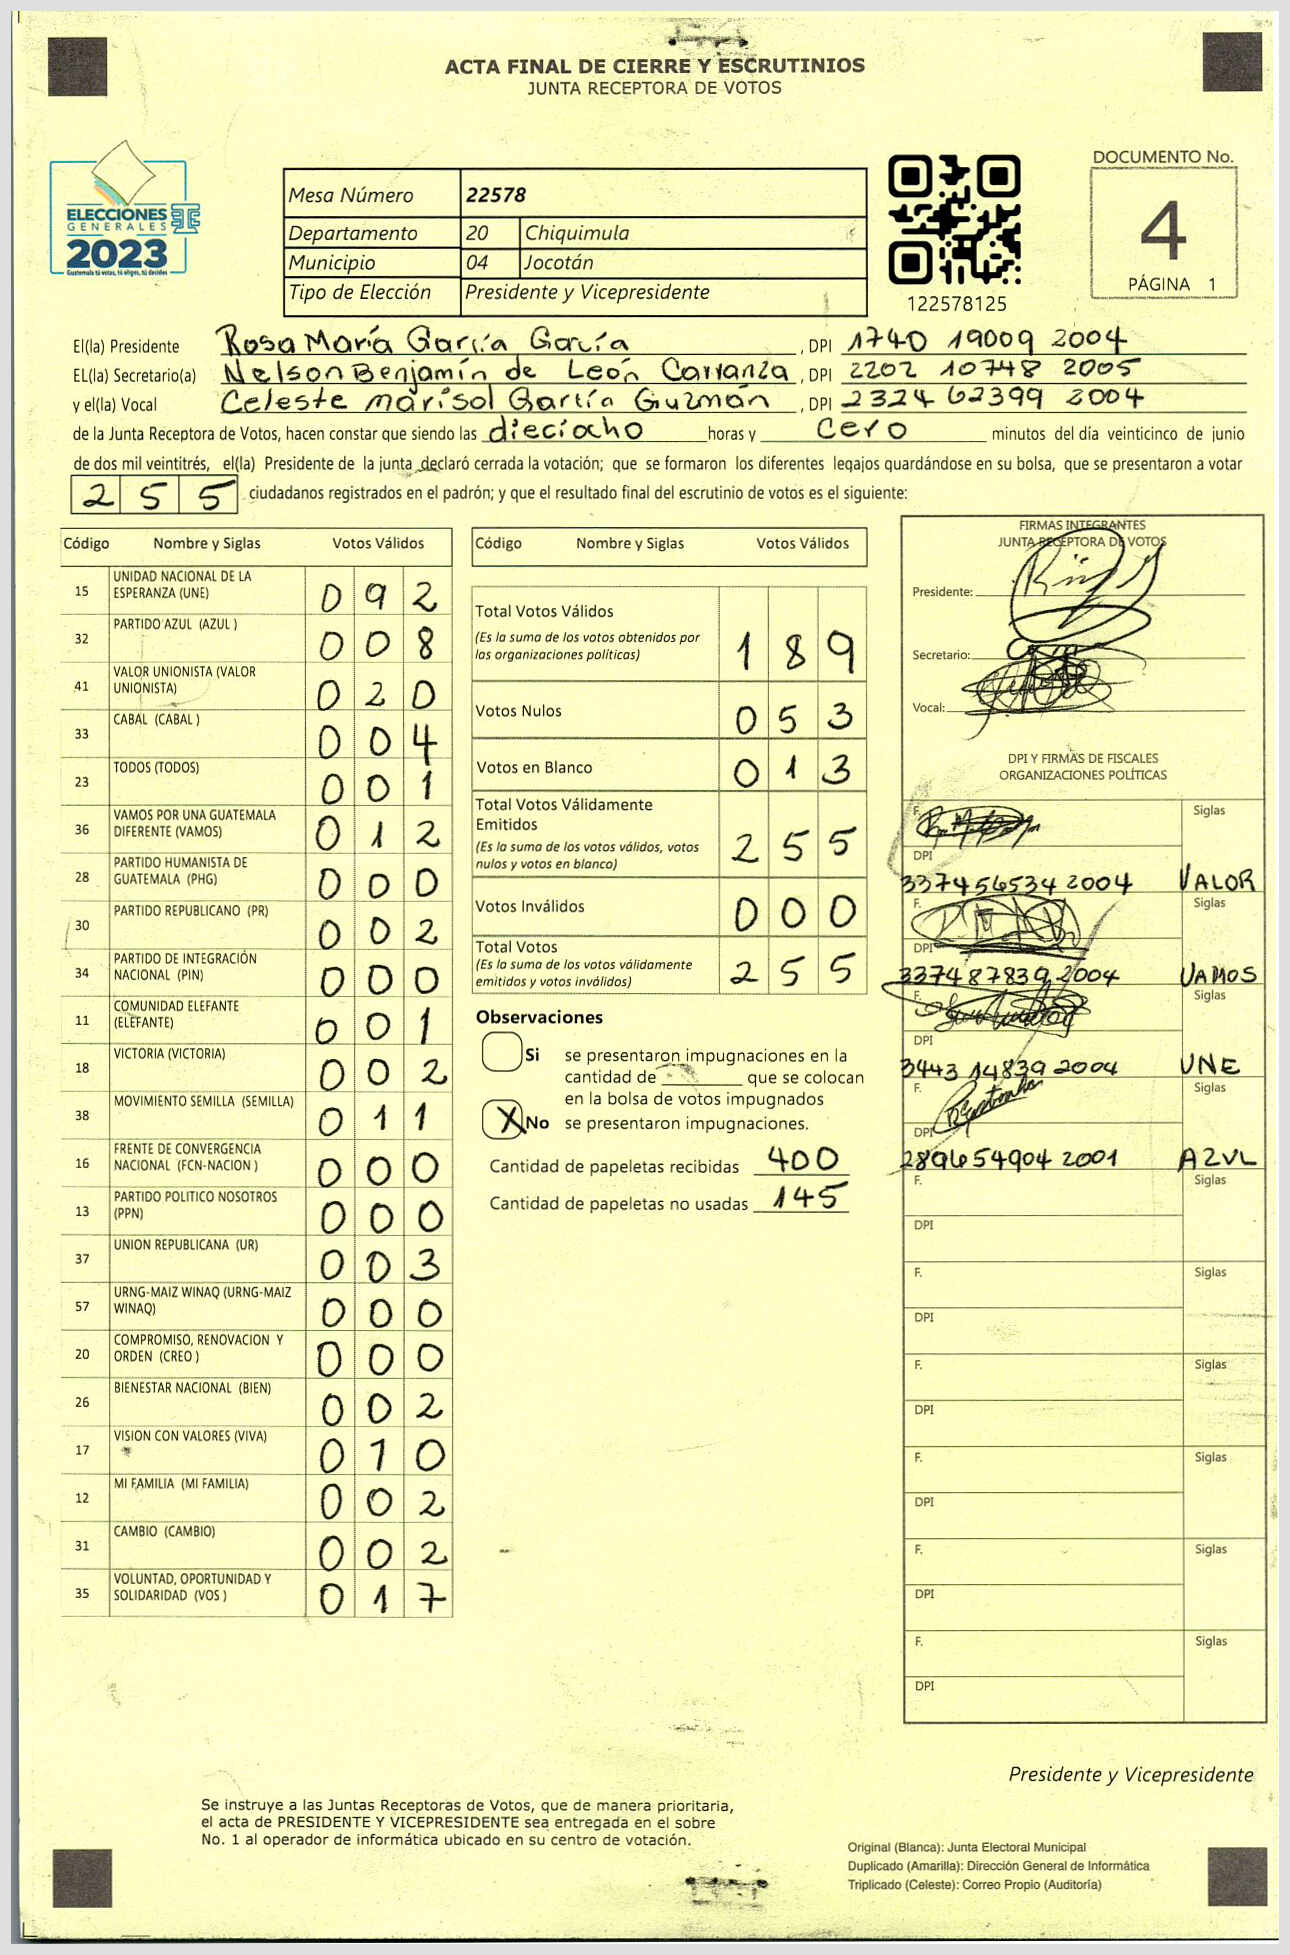 ACTA FINAL DE CIERRE Y ESCRUTINIOS
JUNTA RECEPTORA DE VOTOS
ELECCIONES
GENERALES
2023
Guatemala tú votas, tú eliges, tú decides
Mesa Número 22578
Departamento 20 Chiquimula
Municipio 04 Jocotán
Tipo de Elección Presidente y Vicepresidente
122578125
DOCUMENTO No.
4
PÁGINA 1
El(la) Presidente Rosa María García García, DPI 1740 19009 2004
EL(la) Secretario(a) Nelson Benjamín de León Carranza, DPI 2202 10748 2005
y el(la) Vocal Celeste Marisol García Guzmán, DPI 2324 62399 2004
de la Junta Receptora de Votos, hacen constar que siendo las dieciocho horas y cero minutos del día veinticinco de junio
de dos mil veintitrés, el(la) Presidente de la junta declaró cerrada la votación; que se formaron los diferentes legajos quardándose en su bolsa, que se presentaron a votar
255 ciudadanos registrados en el padrón; y que el resultado final del escrutinio de votos es el siguiente:
Código Nombre y Siglas Votos Válidos
15 UNIDAD NACIONAL DE LA ESPERANZA (UNE) 092
32 PARTIDO AZUL (AZUL ) 008
41 VALOR UNIONISTA (VALOR UNIONISTA) 020
33 CABAL (CABAL ) 004
23 TODOS (TODOS) 001
36 VAMOS POR UNA GUATEMALA DIFERENTE (VAMOS) 012
28 PARTIDO HUMANISTA DE GUATEMALA (PHG) 000
30 PARTIDO REPUBLICANO (PR) 002
34 PARTIDO DE INTEGRACIÓN NACIONAL (PIN) 000
11 COMUNIDAD ELEFANTE (ELEFANTE) 001
18 VICTORIA (VICTORIA) 002
38 MOVIMIENTO SEMILLA (SEMILLA) 011
16 FRENTE DE CONVERGENCIA NACIONAL (FCN-NACION ) 000
13 PARTIDO POLITICO NOSOTROS (PPN) 000
37 UNION REPUBLICANA (UR) 003
57 URNG-MAIZ WINAQ (URNG-MAIZ WINAQ) 000
20 COMPROMISO, RENOVACION Y ORDEN (CREO ) 000
26 BIENESTAR NACIONAL (BIEN) 002
17 VISION CON VALORES (VIVA) 010
12 MI FAMILIA (MI FAMILIA) 002
31 CAMBIO (CAMBIO) 002
35 VOLUNTAD, OPORTUNIDAD Y SOLIDARIDAD (VOS ) 017
Código Nombre y Siglas Votos Válidos
Total Votos Válidos 189
(Es la suma de los votos obtenidos por
las organizaciones políticas)
Votos Nulos 053
Votos en Blanco 013
Total Votos Válidamente
Emitidos 255
(Es la suma de los votos válidos, votos
nulos y votos en blanco)
Votos Inválidos 000
Total Votos 255
(Es la suma de los votos válidamente
emitidos y votos inválidos)
Observaciones
Si se presentaron impugnaciones en la
cantidad de ______ que se colocan
en la bolsa de votos impugnados
X No se presentaron impugnaciones.
Cantidad de papeletas recibidas 400
Cantidad de papeletas no usadas 145
FIRMAS INTEGRANTES
JUNTA RECEPTORA DE VOTOS
Presidente:
Secretario:
Vocal:
DPI Y FIRMAS DE FISCALES
ORGANIZACIONES POLÍTICAS
F. Siglas
DPI
337456534 2004 VALOR
F. Siglas
DPI
337487839 2004 VAMOS
F. Siglas
DPI
3443 14839 2004 UNE
F. Siglas
DPI
289654904 2001 AZUL
F. Siglas
DPI
F. Siglas
DPI
F. Siglas
DPI
F. Siglas
DPI
F. Siglas
DPI
F. Siglas
DPI
Presidente y Vicepresidente
Se instruye a las Juntas Receptoras de Votos, que de manera prioritaria,
el acta de PRESIDENTE Y VICEPRESIDENTE sea entregada en el sobre
No. 1 al operador de informática ubicado en su centro de votación.
Original (Blanca): Junta Electoral Municipal
Duplicado (Amarilla): Dirección General de Informática
Triplicado (Celeste): Correo Propio (Auditoría)